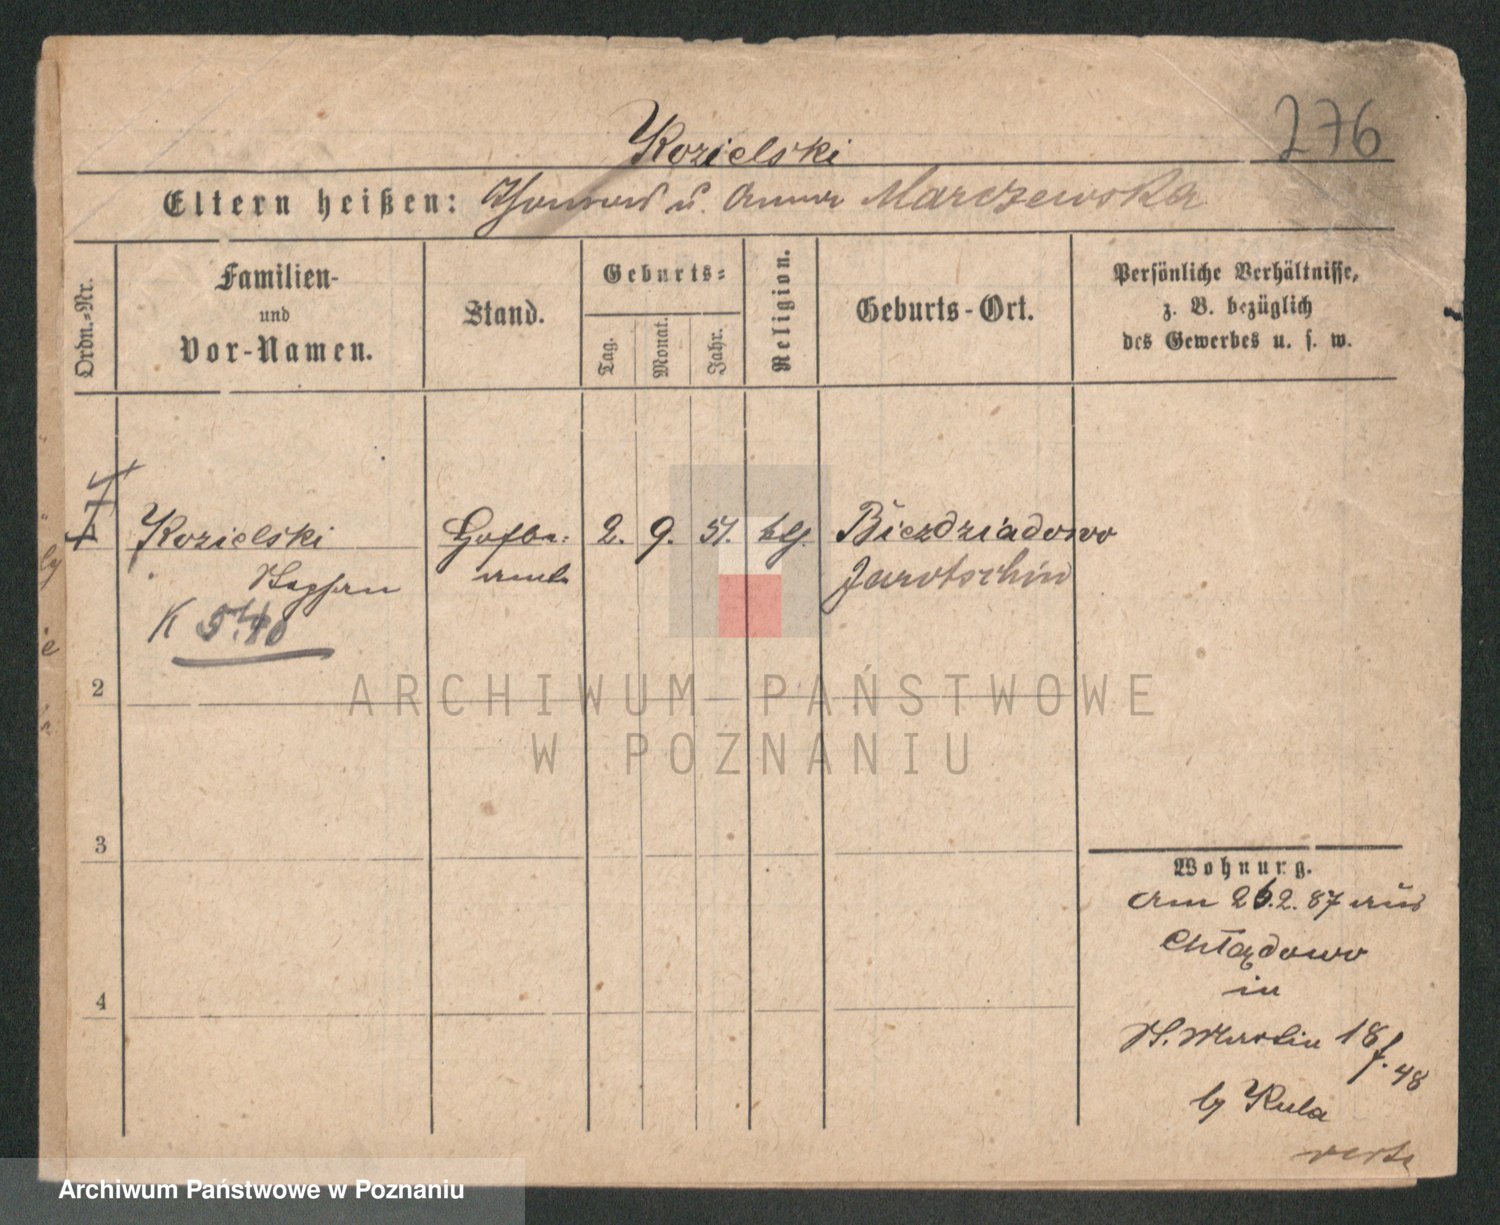 276
Kozielski
Eltern heißen: Thomas u. Anna Marczewska
Ordn.-Nr.
Familien-
und
Vor-Namen.
Stand.
Geburts-
Tag.
Monat.
Jahr.
Religion.
Geburts-Ort.
Persönliche Verhältnisse,
z. B. bezüglich
des Gewerbes u. s. w.
Kozielski 2. 9. 51. ktl. Biezdziadowo
Stephan Jarotschin
K
2
3
4
Wohnung.
am 26.2.87 aus
Chłądowo
in
St. Martin 18
f. 48
by Kula
verte
ARCHIWUM PAŃSTWOWE
W POZNANIU
Archiwum Państwowe w Poznaniu